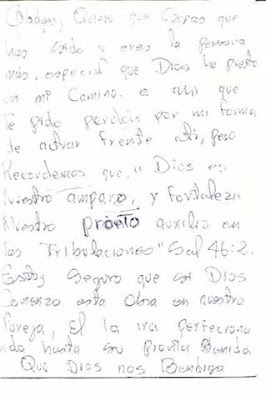 Quiero que Sepas que
has Sido y eres la persona
más, especial que Dios ha puesto
en mi Camino. e ahí que
te pido perdón por mi forma
de actuar frente a ti, pero
Recordemos que, "Dios es
Nuestro amparo, y Fortaleza
Nuestro pronto auxilio en
las Tribulaciones" Sal 46:2.
Estoy Seguro que si DIOS
Comenzo esta Obra en nuestra
Pareja, El la ira perfeciona
ndo hasta su pronta Benida
Que Dios nos Bendiga